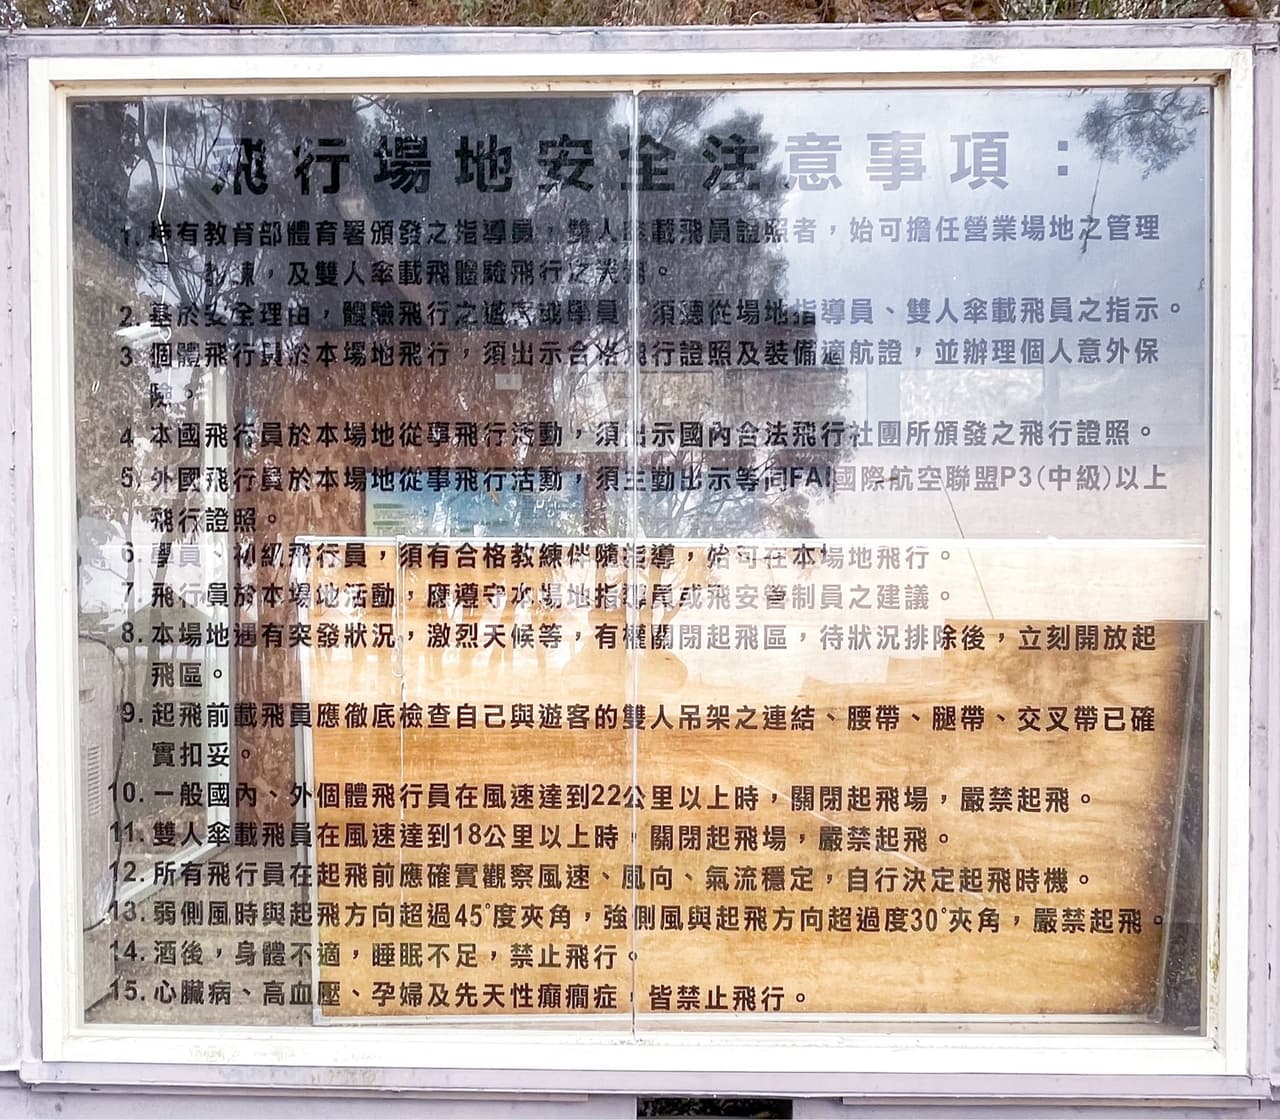 飛行場地安全注意事項：
1. 持有教育部體育署頒發之指導員，雙人傘載飛員證照者，始可擔任營業場地之管理
教練，及雙人傘載飛體驗飛行之業務。
2. 基於安全理由，體驗飛行之遊客或學員，須聽從場地指導員、雙人傘載飛員之指示。
3. 個體飛行員於本場地飛行，須出示合格飛行證照及裝備適航證，並辦理個人意外保
險。
4. 本國飛行員於本場地從事飛行活動，須出示國內合法飛行社團所頒發之飛行證照。
5. 外國飛行員於本場地從事飛行活動，須主動出示等同FAI國際航空聯盟P3(中級)以上
飛行證照。
6. 學員、初級飛行員，須有合格教練伴隨指導，始可在本場地飛行。
7. 飛行員於本場地活動，應遵守本場地指導員或飛安管制員之建議。
8. 本場地遇有突發狀況，激烈天候等，有權關閉起飛區，待狀況排除後，立刻開放起
飛區。
9. 起飛前載飛員應徹底檢查自己與遊客的雙人吊架之連結、腰帶、腿帶、交叉帶已確
實扣妥。
10. 一般國內、外個體飛行員在風速達到22公里以上時，關閉起飛場，嚴禁起飛。
11. 雙人傘載飛員在風速達到18公里以上時，關閉起飛場，嚴禁起飛。
12. 所有飛行員在起飛前應確實觀察風速、風向、氣流穩定，自行決定起飛時機。
13. 弱側風時與起飛方向超過45°度夾角，強側風與起飛方向超過度30°夾角，嚴禁起飛。
14. 酒後，身體不適，睡眠不足，禁止飛行。
15. 心臟病、高血壓、孕婦及先天性癲癇症，皆禁止飛行。